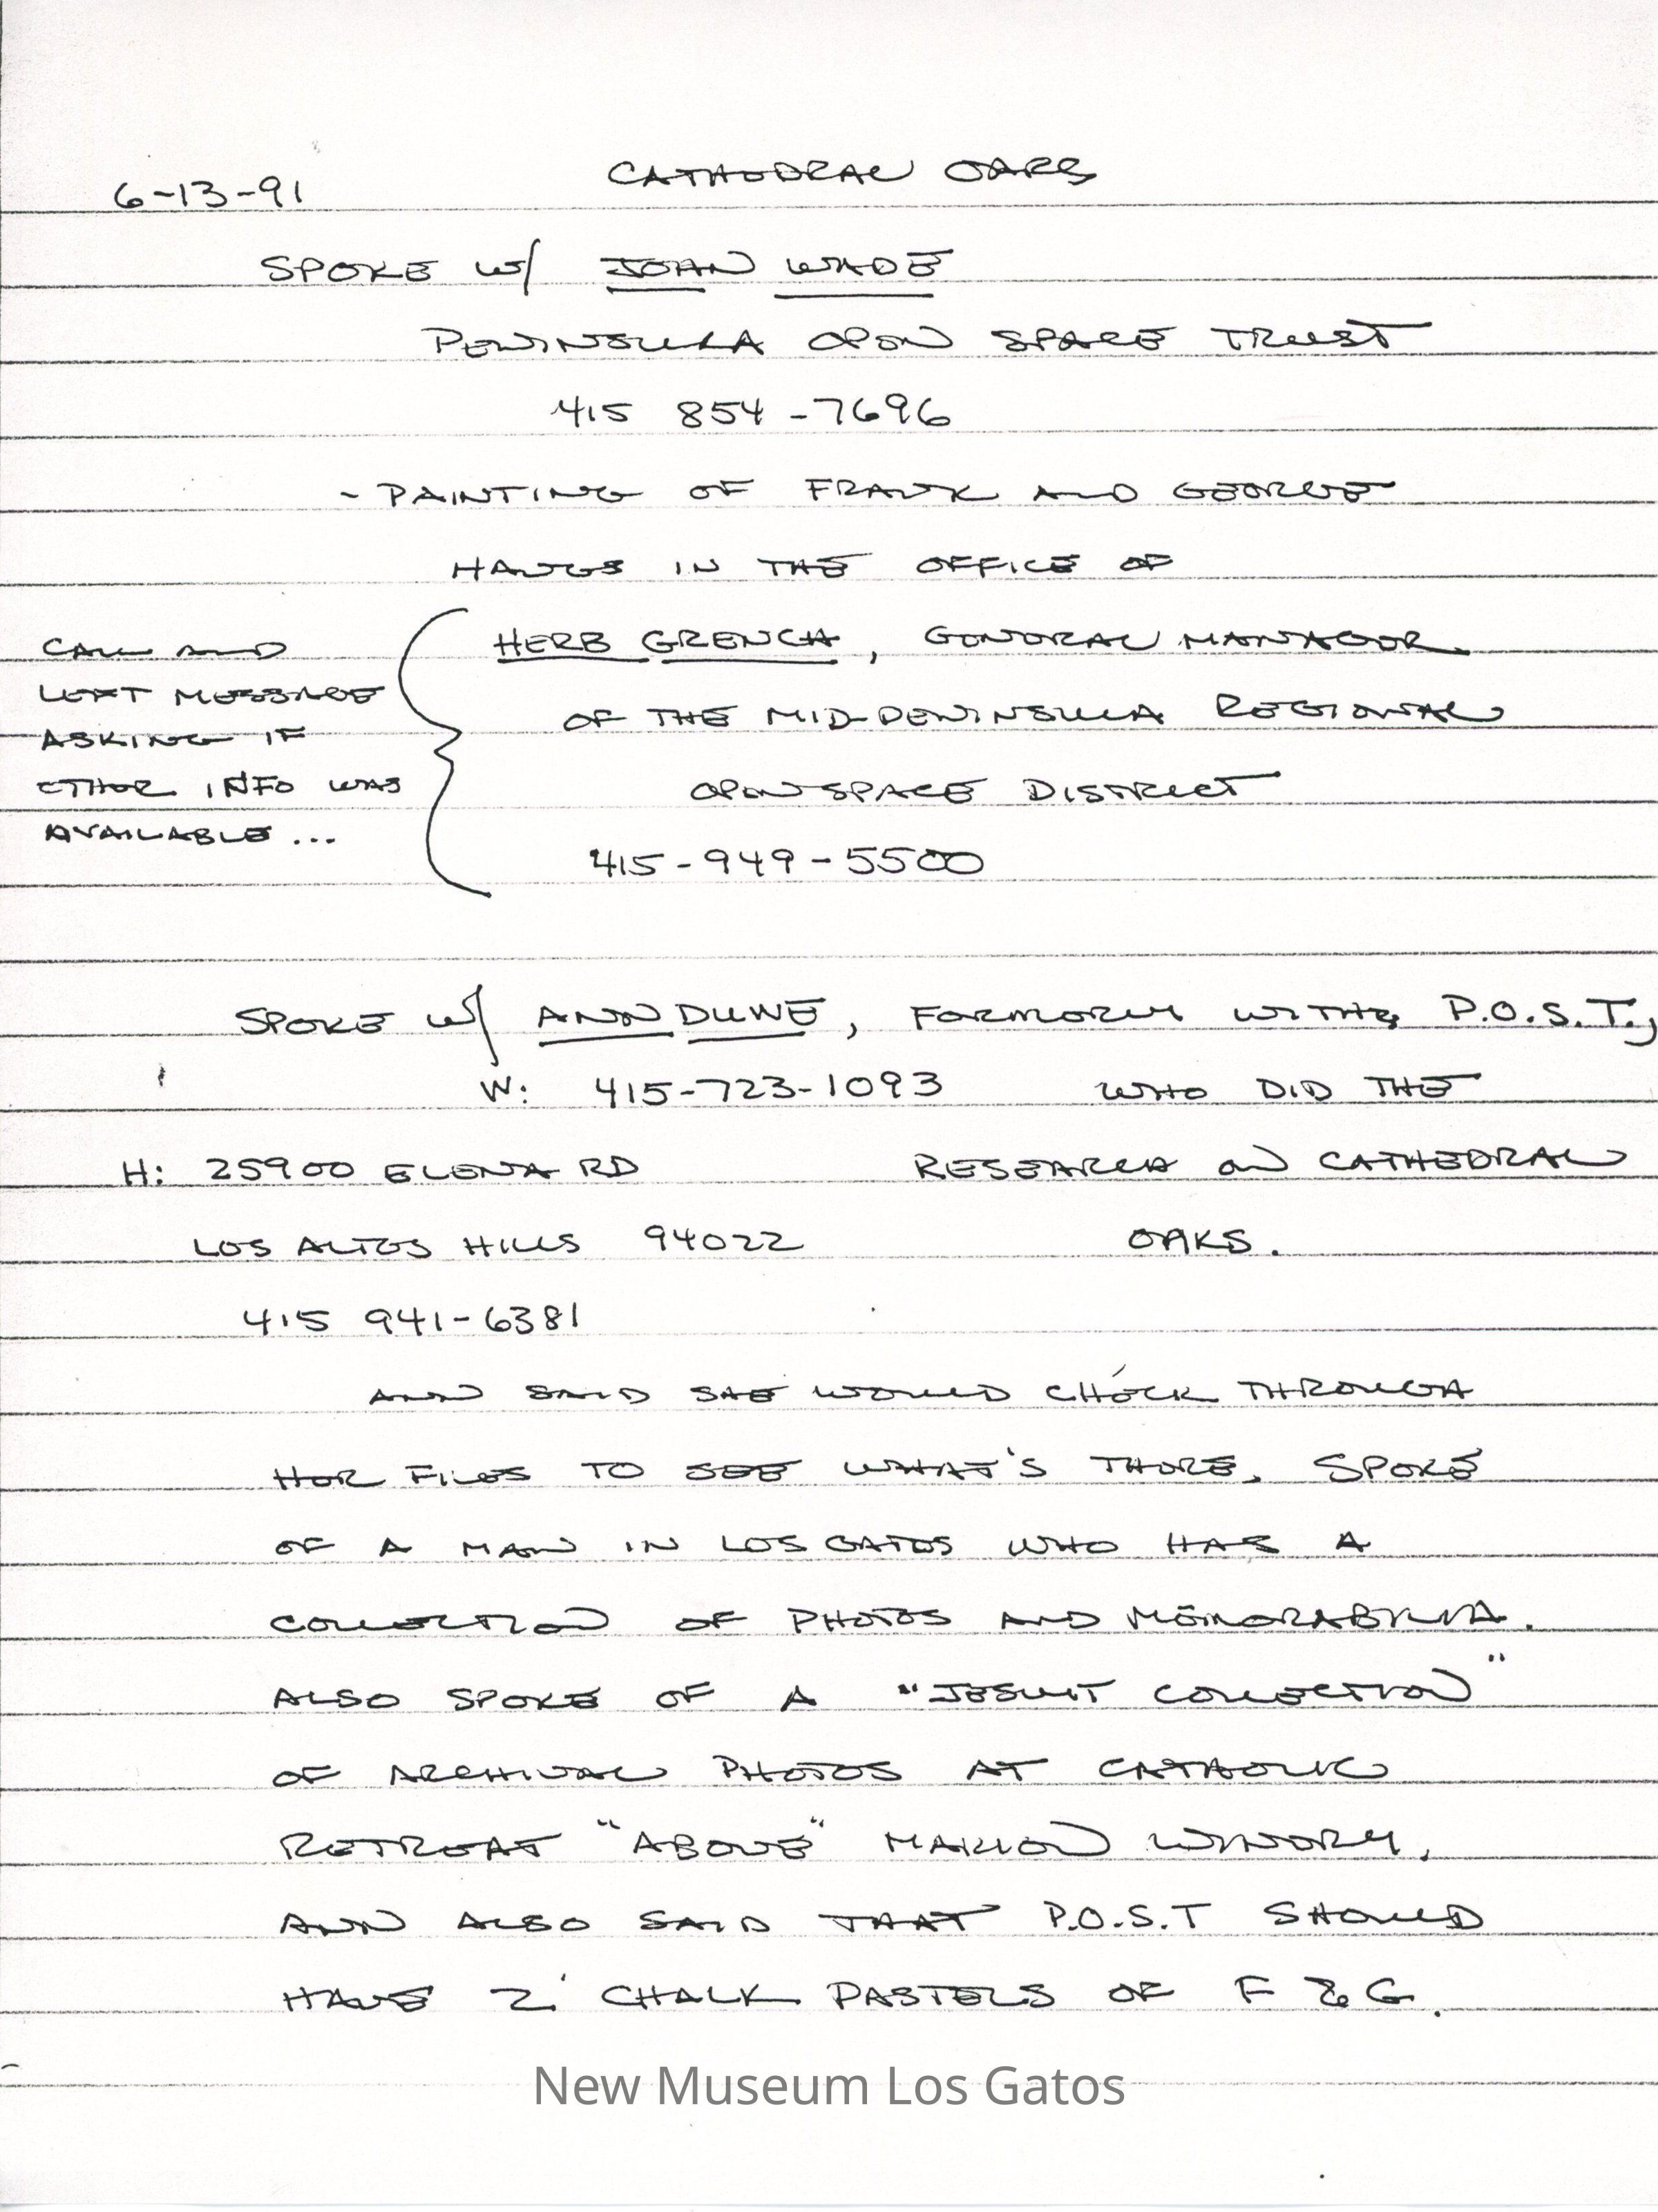 6-13-91
CATHEDRAL OAKS
SPOKE W/ JOAN WADE
PENINSULA OPEN SPACE TRUST
415 854-7696
- PAINTING OF FRANK AND GEORGE
HANGS IN THE OFFICE OF
HERB GRENCH, GENERAL MANAGER
OF THE MID-PENINSULA REGIONAL
OPEN SPACE DISTRICT
415-949-5500
CALL AND
LEFT MESSAGE
ASKING IF
OTHER INFO WAS
AVAILABLE...
SPOKE W/ ANN DUWE, FORMERLY WITH P.O.S.T.,
W: 415-723-1093
WHO DID THE
RESEARCH ON CATHEDRAL
OAKS.
H: 25900 ELENA RD
LOS ALTOS HILLS 94022
415 941-6381
ANN SAID SHE WOULD CHECK THROUGH
HER FILES TO SEE WHAT'S THERE. SPOKE
OF A MAN IN LOS GATOS WHO HAS A
COLLECTION OF PHOTOS AND MEMORABILIA.
ALSO SPOKE OF A "JESUIT COLLECTION"
OF ARCHIVAL PHOTOS AT CATHOLIC
RETREAT "ABOVE" MARION WINERY.
ANN ALSO SAID THAT P.O.S.T SHOULD
HAVE 2 CHALK PASTELS OF F & G.
New Museum Los Gatos